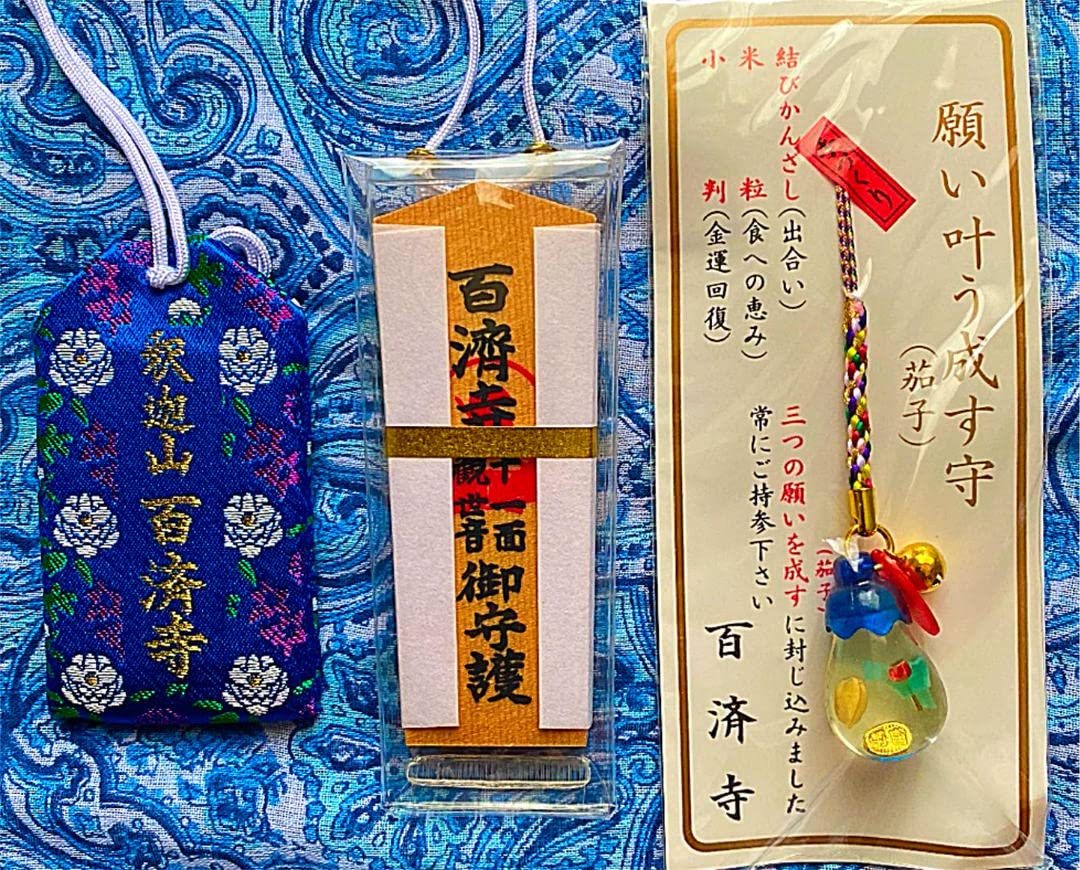 釈迦山 百済寺
百濟寺
十一面
観世音
御守護
願い叶う成す守
(茄子)
結びかんざし(出合い)
米粒(食への恵み)
小判(金運回復)
(茄子)
三つの願いを成すに封じ込みました
常にご持参下さい
百済寺